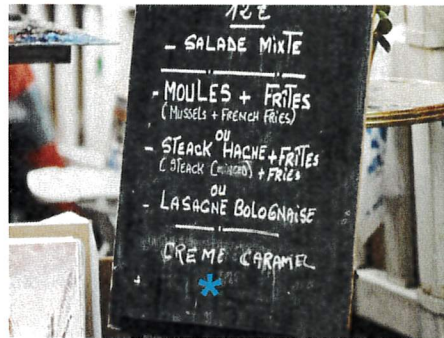 12€
- SALADE MIXTE
- MOULES + FRITES
(MUSSELS + FRENCH FRIES)
OU
- STEACK HACHE + FRITES
(STEACK (MINCED) + FRIES
OU
- LASAGNE BOLOGNAISE
CREME CARAMEL